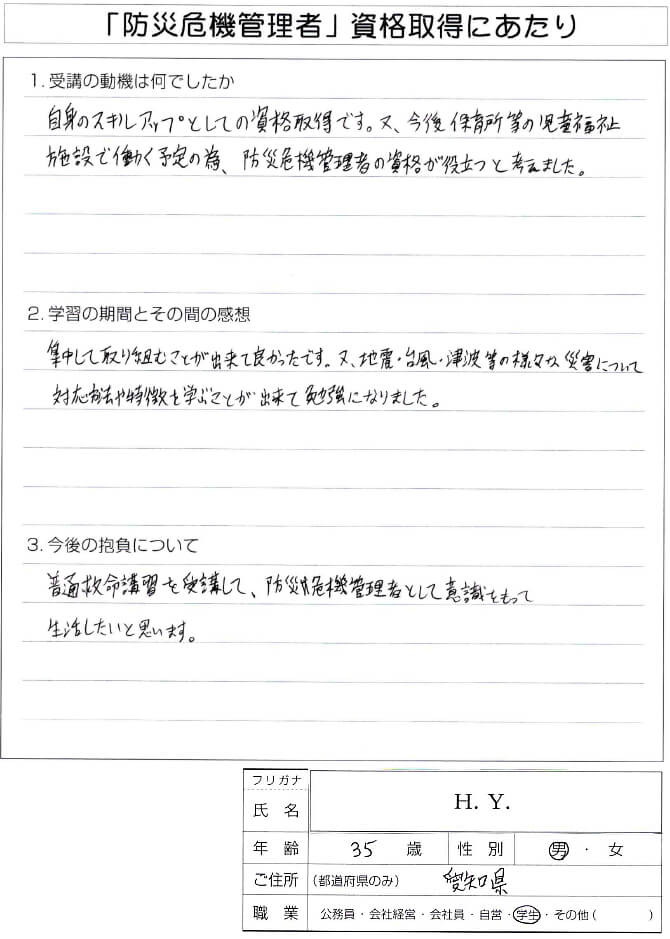 「防災危機管理者」資格取得にあたり
1. 受講の動機は何でしたか
自身のスキルアップとしての資格取得です。又、今後保育所等の児童福祉
施設で働く予定の為、防災危機管理者の資格が役立つと考えました。
2. 学習の期間とその間の感想
集中して取り組むことが出来て良かったです。又、地震・台風・津波等の様々な災害について
対応方法や特徴を学ぶことが出来て勉強になりました。
3. 今後の抱負について
普通救命講習を受講して、防災危機管理者として意識をもって
生活したいと思います。
フリガナ
氏名 H. Y.
年齢 35 歳 性別 男・女
ご住所 (都道府県のみ) 愛知県
職業 公務員・会社経営・会社員・自営・学生・その他( )